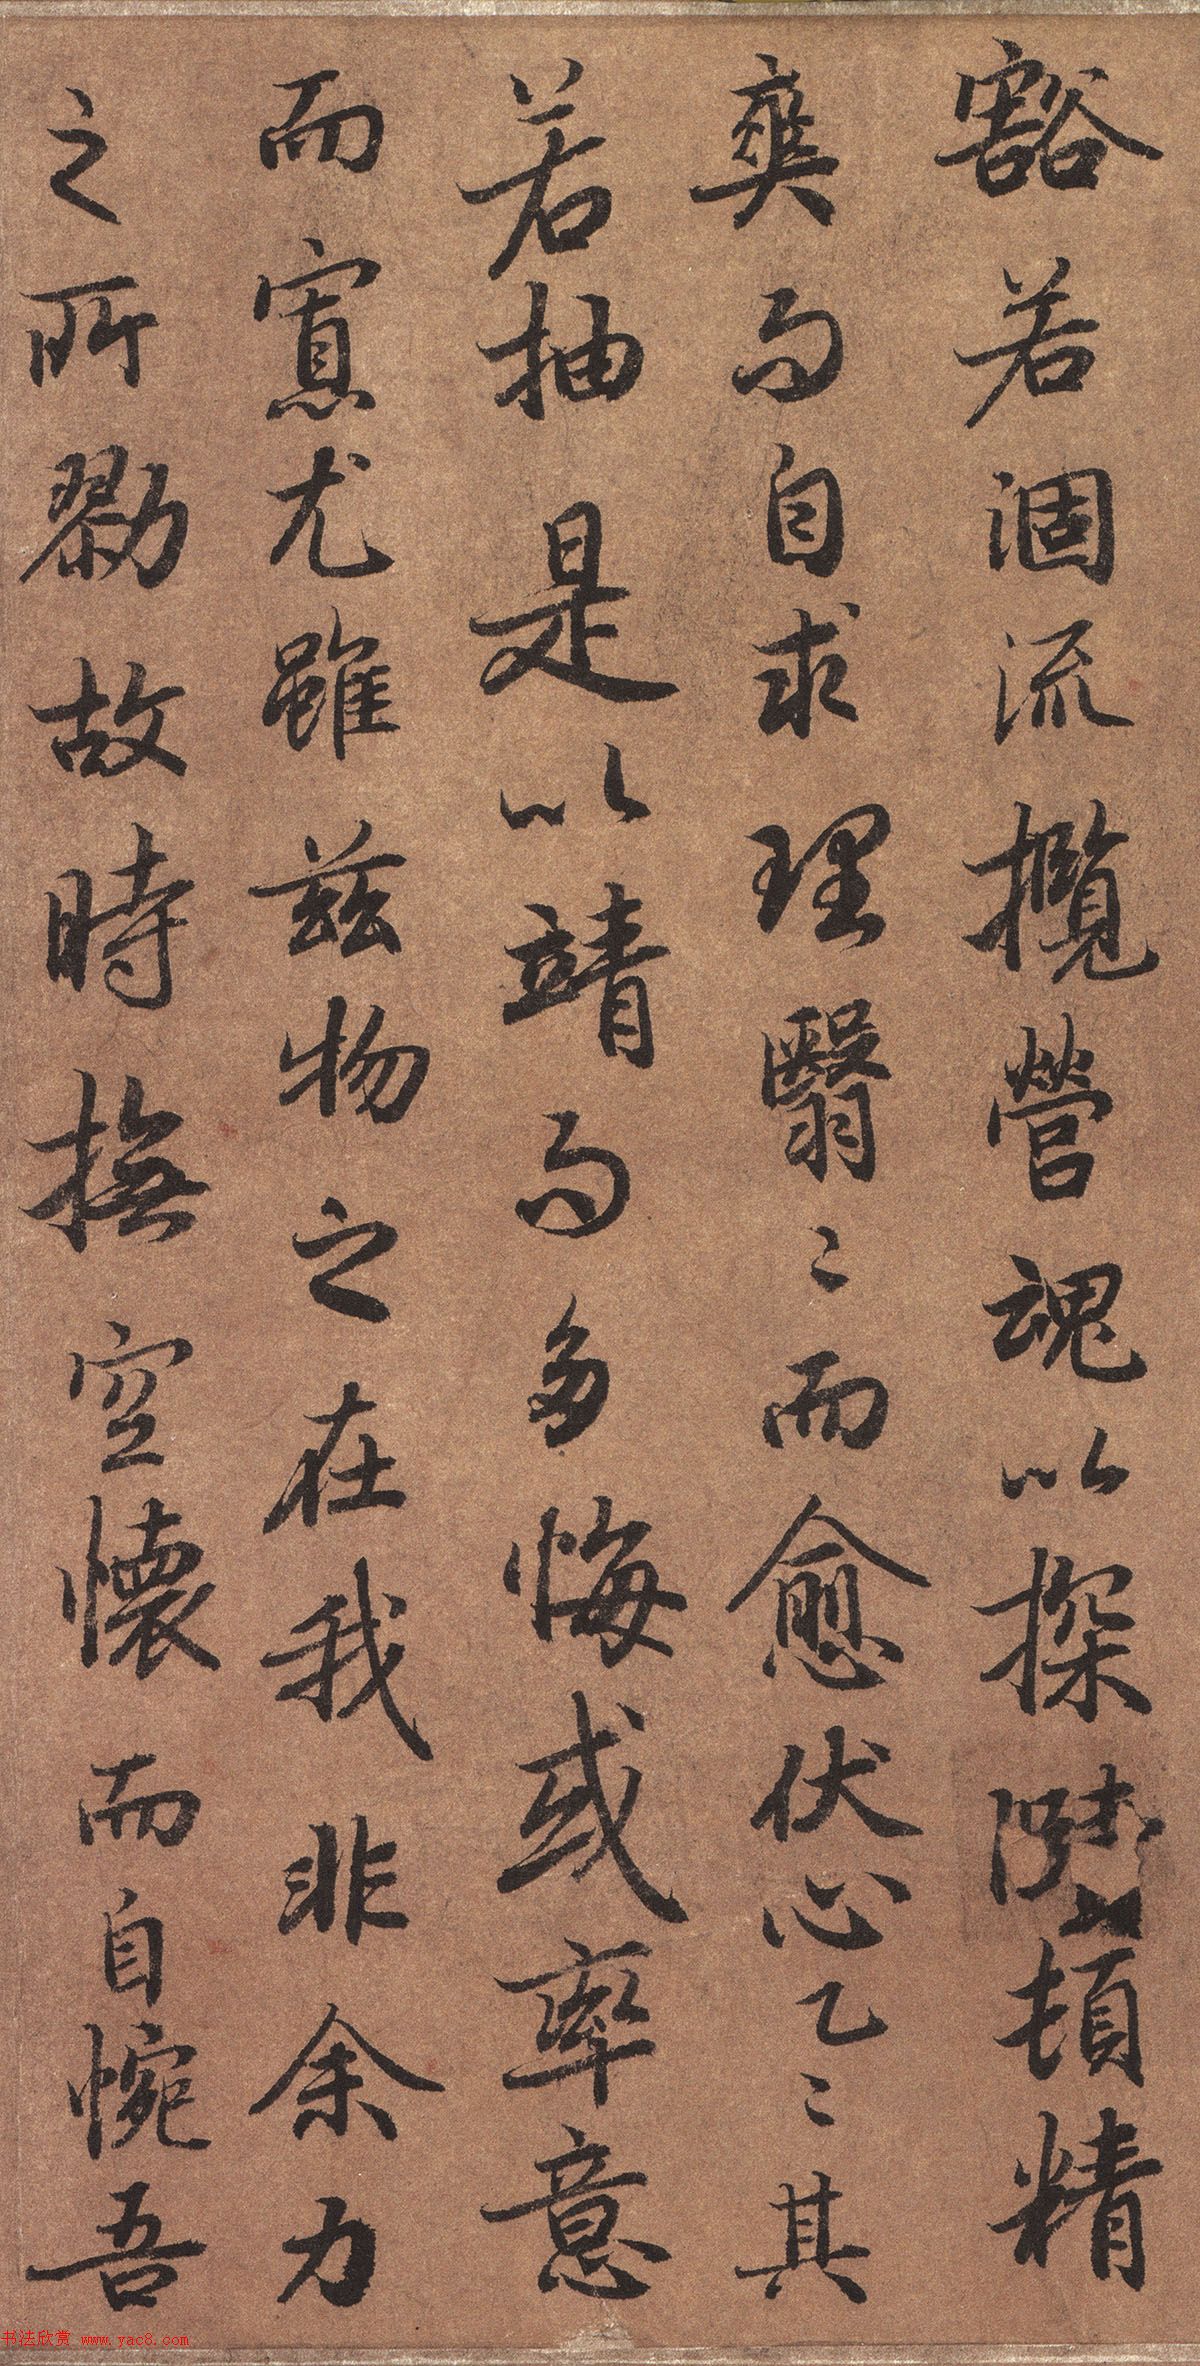 豁若涸流攬營魂以探頓精
爽而自求理翳〻而愈伏心乙〻其
若抽是以靖而多悔或率意
而寡尤雖茲物之在我非余力
之所勠故時撫空懷而自惋吾
书法欣赏 www.yac8.com